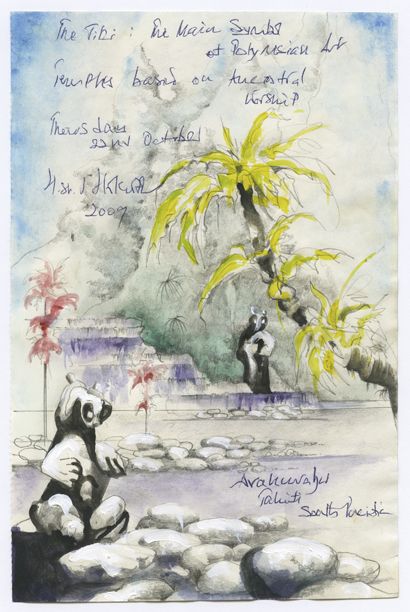 The Tiki : The Main Symbol
of Polynesian Art
Temples based on Ancestral
Worship
Thursday
22nd October
2009
Arahurahu
Tahiti
South